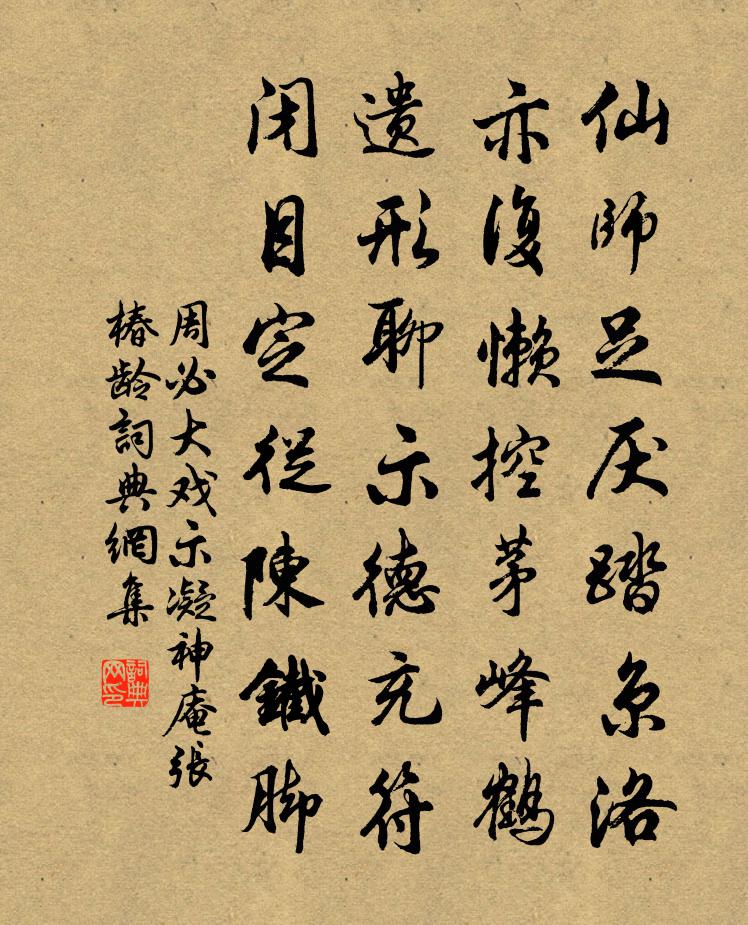 仙师足厌踏京洛
亦復懒控茅峰鹤
遗形聊示德充符
闭目定從陳鐵脚
周必大戏示凝神庵張
椿龄詞典網集
詞典
网印